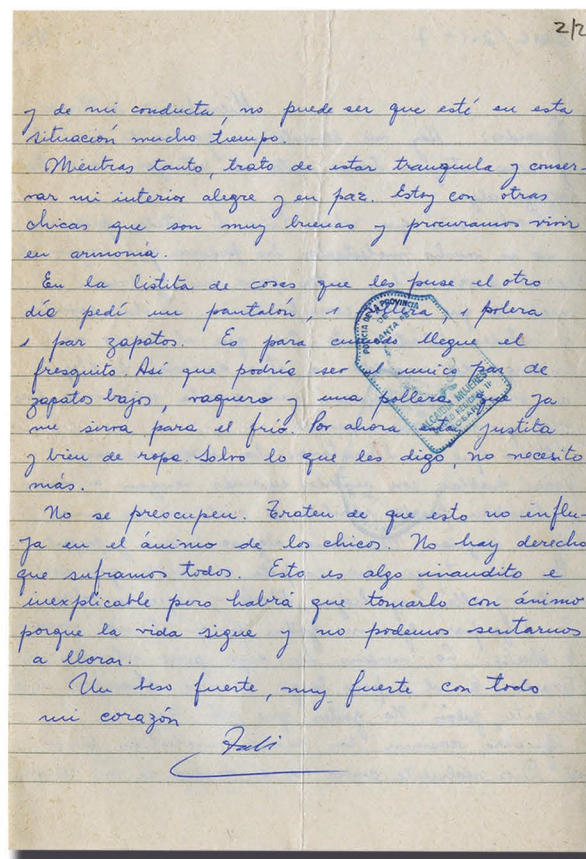 2/2
y de mi conducta, no puede ser que esté en esta
situación mucho tiempo.
Mientras tanto, trato de estar tranquila y conser-
var mi interior alegre y en paz. Estoy con otras
chicas que son muy buenas y procuramos vivir
en armonía.
En la listita de cosas que les puse el otro
día pedí un pantalón, 1 pollera 1 polera
1 par zapatos. Es para cuando llegue el
fresquito. Así que podría ser el único par de
zapatos bajos, vaquero y una pollera que ya
me sirva para el frío. Por ahora estoy justita
y bien de ropa. Salvo lo que les digo, no necesito
más.
No se preocupen. Traten de que esto no influ-
ya en el ánimo de los chicos. No hay derecho
que suframos todos. Esto es algo inaudito e
inexplicable pero habrá que tomarlo con ánimo
porque la vida sigue y no podemos sentarnos
a llorar.
Un beso fuerte, muy fuerte con todo
mi corazón
POLICIA DE LA PROVINCIA
SANTA FE
ALCAIDIA MUJERES